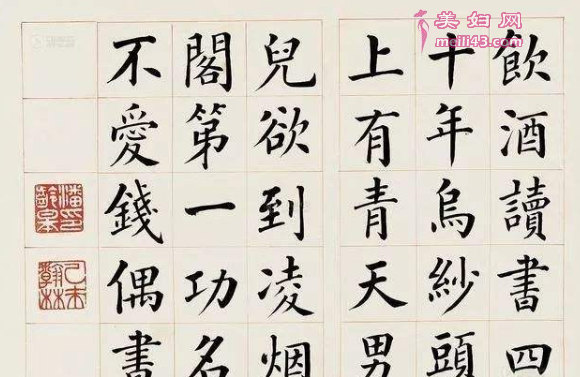 美妇网
meili43.com
飲酒讀書四
十年烏紗頭
上有青天男
兒欲到凌烟
閣第一功名
不愛錢偶書
潘印齡皋
乙未翰林